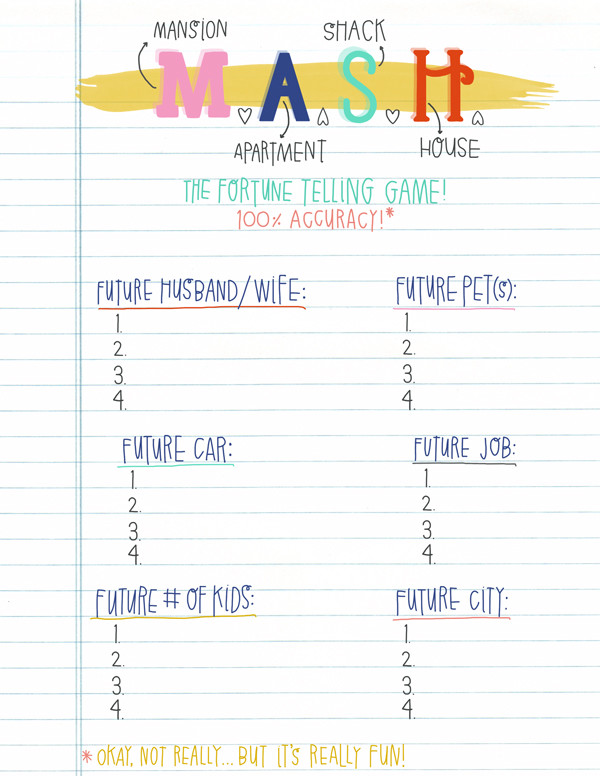 MANSION SHACK
MASH
APARTMENT HOUSE
THE FORTUNE TELLING GAME!
100% ACCURACY!*
FUTURE HUSBAND/WIFE:
1.
2.
3.
4.
FUTURE PET(S):
1.
2.
3.
4.
FUTURE CAR:
1.
2.
3.
4.
FUTURE JOB:
1.
2.
3.
4.
FUTURE # OF KIDS:
1.
2.
3.
4.
FUTURE CITY:
1.
2.
3.
4.
* OKAY, NOT REALLY... BUT IT'S REALLY FUN!